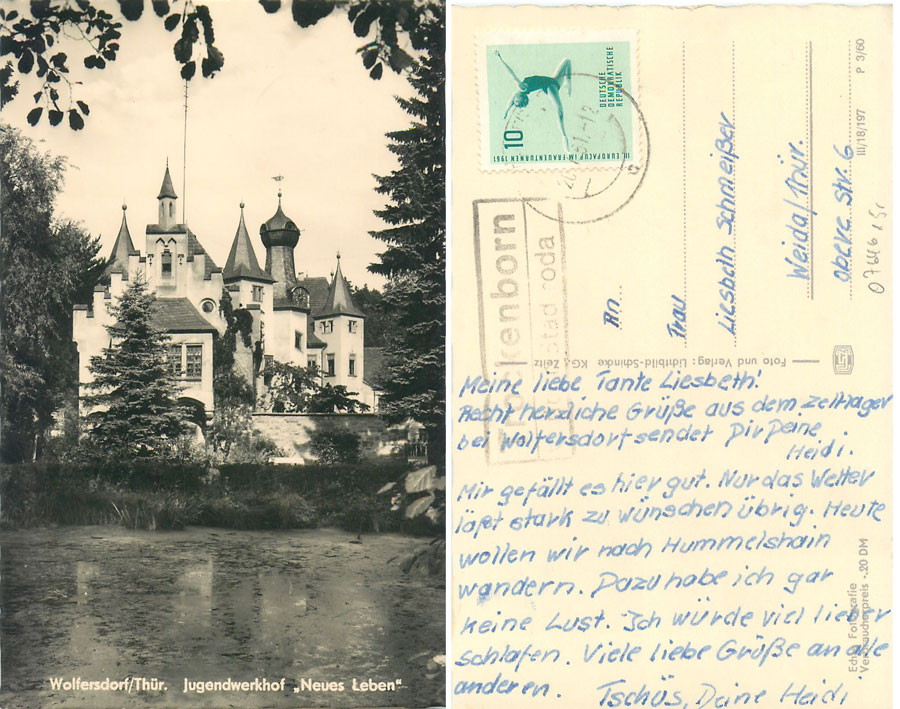 Wolfersdorf/Thür. Jugendwerkhof „Neues Leben“
10
DEUTSCHE
DEMOKRATISCHE
REPUBLIK
III. EUROPACUP IM FRAUENTURNEN 1961
kenborn
stadtroda
An
Frau
Liesbeth Schmeißer
Weida/Thür.
Obere Str. 6
Foto und Verlag: Lichtbild-Schincke KG., Zeitz
III/18/197
P 3/60
Echte Fotografie
Verbraucherpreis -.20 DM
Meine liebe Tante Liesbeth!
Recht herzliche Grüße aus dem Zeltlager
bei Wolfersdorf sendet Dir Deine
Heidi.
Mir gefällt es hier gut. Nur das Wetter
läßt stark zu wünschen übrig. Heute
wollen wir nach Hummelshain
wandern. Dazu habe ich gar
keine Lust. Ich würde viel lieber
schlafen. Viele liebe Grüße an alle
anderen. Tschüs, Deine Heidi